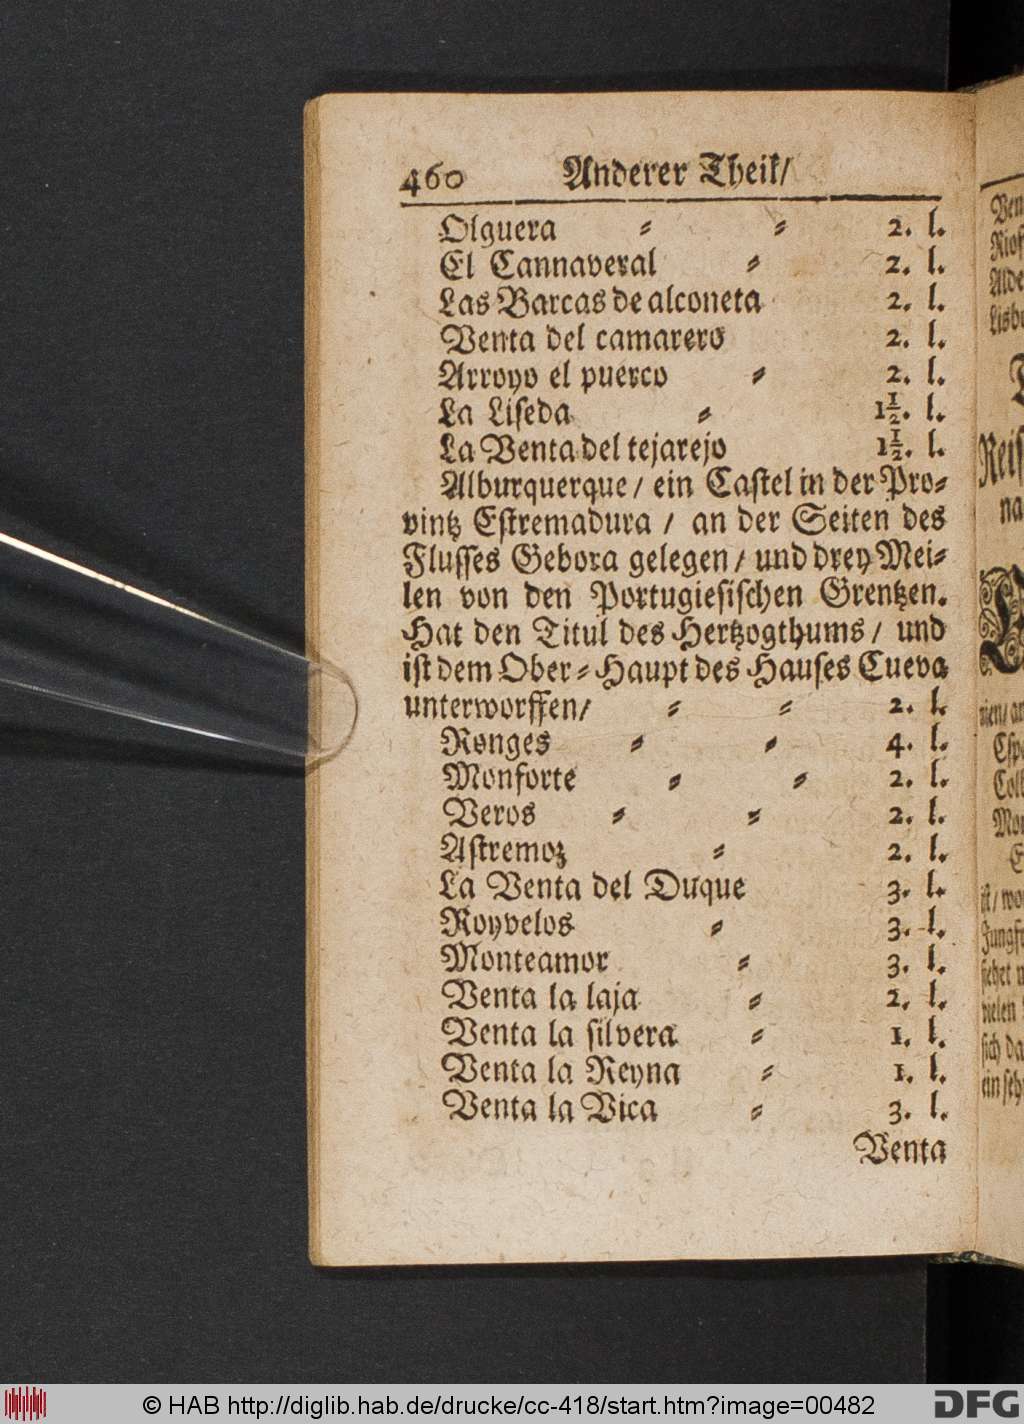 460 Anderer Theil/
Olguera ⸗ ⸗ 2. l.
El Cannaveral ⸗ 2. l.
Las Barcas de alconeta 2. l.
Venta del camarero 2. l.
Arroyo el puerco ⸗ 2. l.
La Liſeda ⸗ 1½. l.
La Venta del tejarejo 1½. l.
Alburquerque / ein Caſtel in der Pro⸗
vintz Eſtremadura / an der Seiten des
Fluſſes Gebora gelegen / und drey Mei⸗
len von den Portugieſiſchen Grentzen.
Hat den Titul des Hertzogthums / und
iſt dem Ober⸗Haupt des Hauſes Cueva
unterworffen/ ⸗ ⸗ 2. l.
Ronges ⸗ ⸗ 4. l.
Monforte ⸗ ⸗ 2. l.
Veros ⸗ ⸗ 2. l.
Aſtremoz ⸗ 2. l.
La Venta del Duque 3. l.
Royvelos ⸗ 3. l.
Monteamor ⸗ 3. l.
Venta la laja ⸗ 2. l.
Venta la ſilvera ⸗ 1. l.
Venta la Reyna ⸗ 1. l.
Venta la Vica ⸗ 3. l.
Venta
© HAB http://diglib.hab.de/drucke/cc-418/start.htm?image=00482
DFG